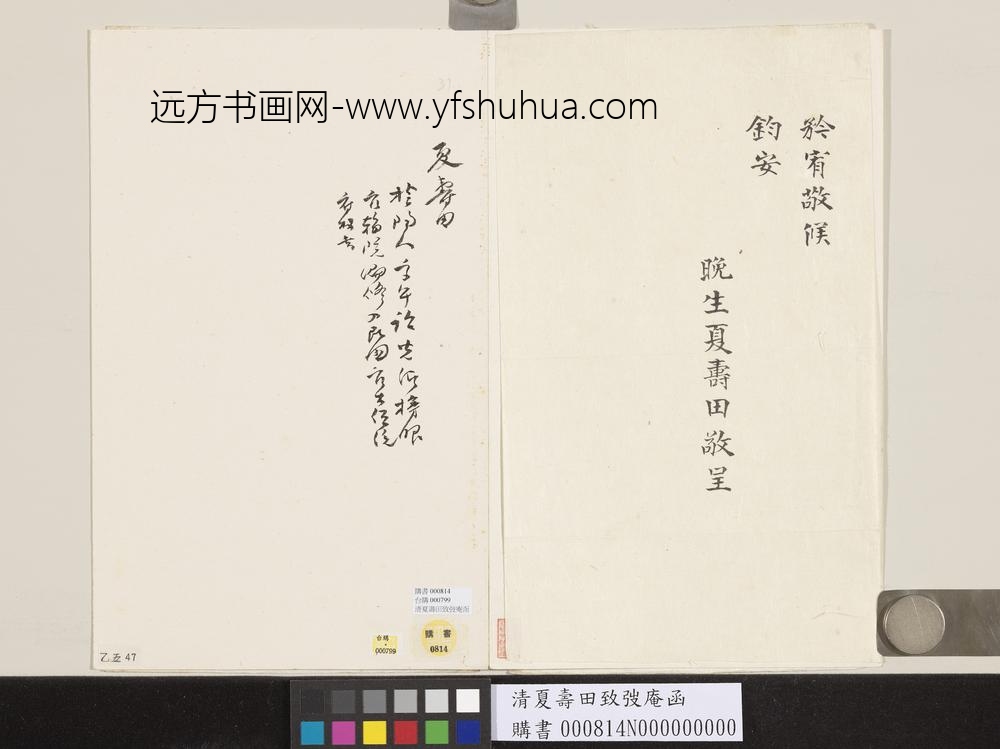 远方书画网-www.yfshuhua.com
矜宥敬候
鈞安
晚生夏壽田敬呈
夏壽田
購書 000814
台購 000799
清夏壽田致弢庵函
台購
000799
購 書
0814
乙 五 47
清夏壽田致弢庵函
購書 000814N000000000